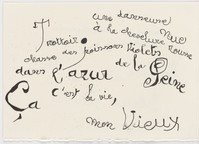 une danseuse nue
Trottoir à la chevelure rousse
chasse des poissons violets
dans l'azur de la Seine
Ça c'est la vie,
mon Vieux